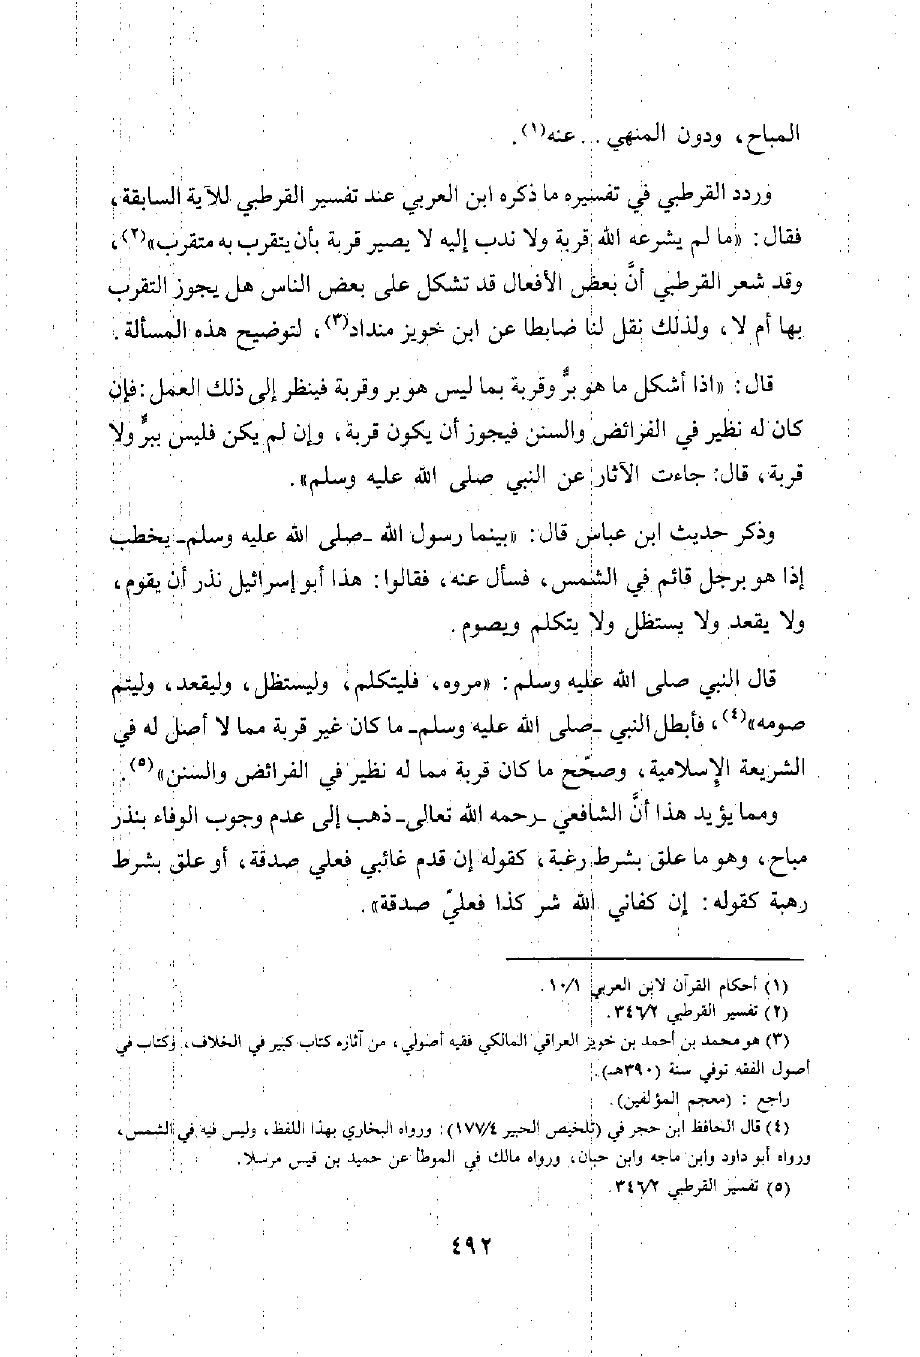 المباح، ودون المنهي .. عنه(١).
وردد القرطبي في تفسيره ما ذكره ابن العربي عند تفسير القرطبي للآية السابقة،
فقال: «ما لم يشرعه الله قربة ولا ندب إليه لا يصير قربة بأن يتقرب به متقرب»(٢)،
وقد شعر القرطبي أنَّ بعض الأفعال قد تشكل على بعض الناس هل يجوز التقرب
بها أم لا، ولذلك نقل لنا ضابطا عن ابن خويز منداد(٣)، لتوضيح هذه المسألة.
قال: «اذا أشكل ما هو برٌّ وقربة بما ليس هو بر وقربة فينظر إلى ذلك العمل: فإن
كان له نظير في الفرائض والسنن فيجوز أن يكون قربة، وإن لم يكن فليس ببرٍّ ولا
قربة، قال: جاءت الآثار عن النبي صلى الله عليه وسلم».
وذكر حديث ابن عباس قال: «بينما رسول الله ـ صلى الله عليه وسلم ـ يخطب
إذا هو برجل قائم في الشمس، فسأل عنه، فقالوا: هذا أبو إسرائيل نذر أن يقوم،
ولا يقعد ولا يستظل ولا يتكلم ويصوم.
قال النبي صلى الله عليه وسلم: «مروه، فليتكلم، وليستظل، وليقعد، وليتم
صومه»(٤)، فأبطل النبي ـ صلى الله عليه وسلم ـ ما كان غير قربة مما لا أصل له في
الشريعة الإسلامية، وصحّح ما كان قربة مما له نظير في الفرائض والسنن»(٥).
ومما يؤيد هذا أنَّ الشافعي ـ رحمه الله تعالى ـ ذهب إلى عدم وجوب الوفاء بنذر
مباح، وهو ما علق بشرط رغبة، كقوله إن قدم غائبي فعلي صدقة، أو علق بشرط
رهبة كقوله: إن كفاني الله شر كذا فعليّ صدقة».
(١) أحكام القرآن لابن العربي ١٠/١.
(٢) تفسير القرطبي ٣٤٦/٢.
(٣) هو محمد بن أحمد بن خويز العراقي المالكي فقيه أصولي، من آثاره كتاب كبير في الخلاف، وكتاب في
أصول الفقه توفي سنة (٣٩٠هـ).
راجع: (معجم المؤلفين).
(٤) قال الحافظ ابن حجر في (تلخيص الحبير ١٧٧/٤): ورواه البخاري بهذا اللفظ، وليس فيه في الشمس،
ورواه أبو داود وابن ماجه وابن حبان، ورواه مالك في الموطأ عن حميد بن قيس مرسلا.
(٥) تفسير القرطبي ٣٤٦/٢.
٤٩٢